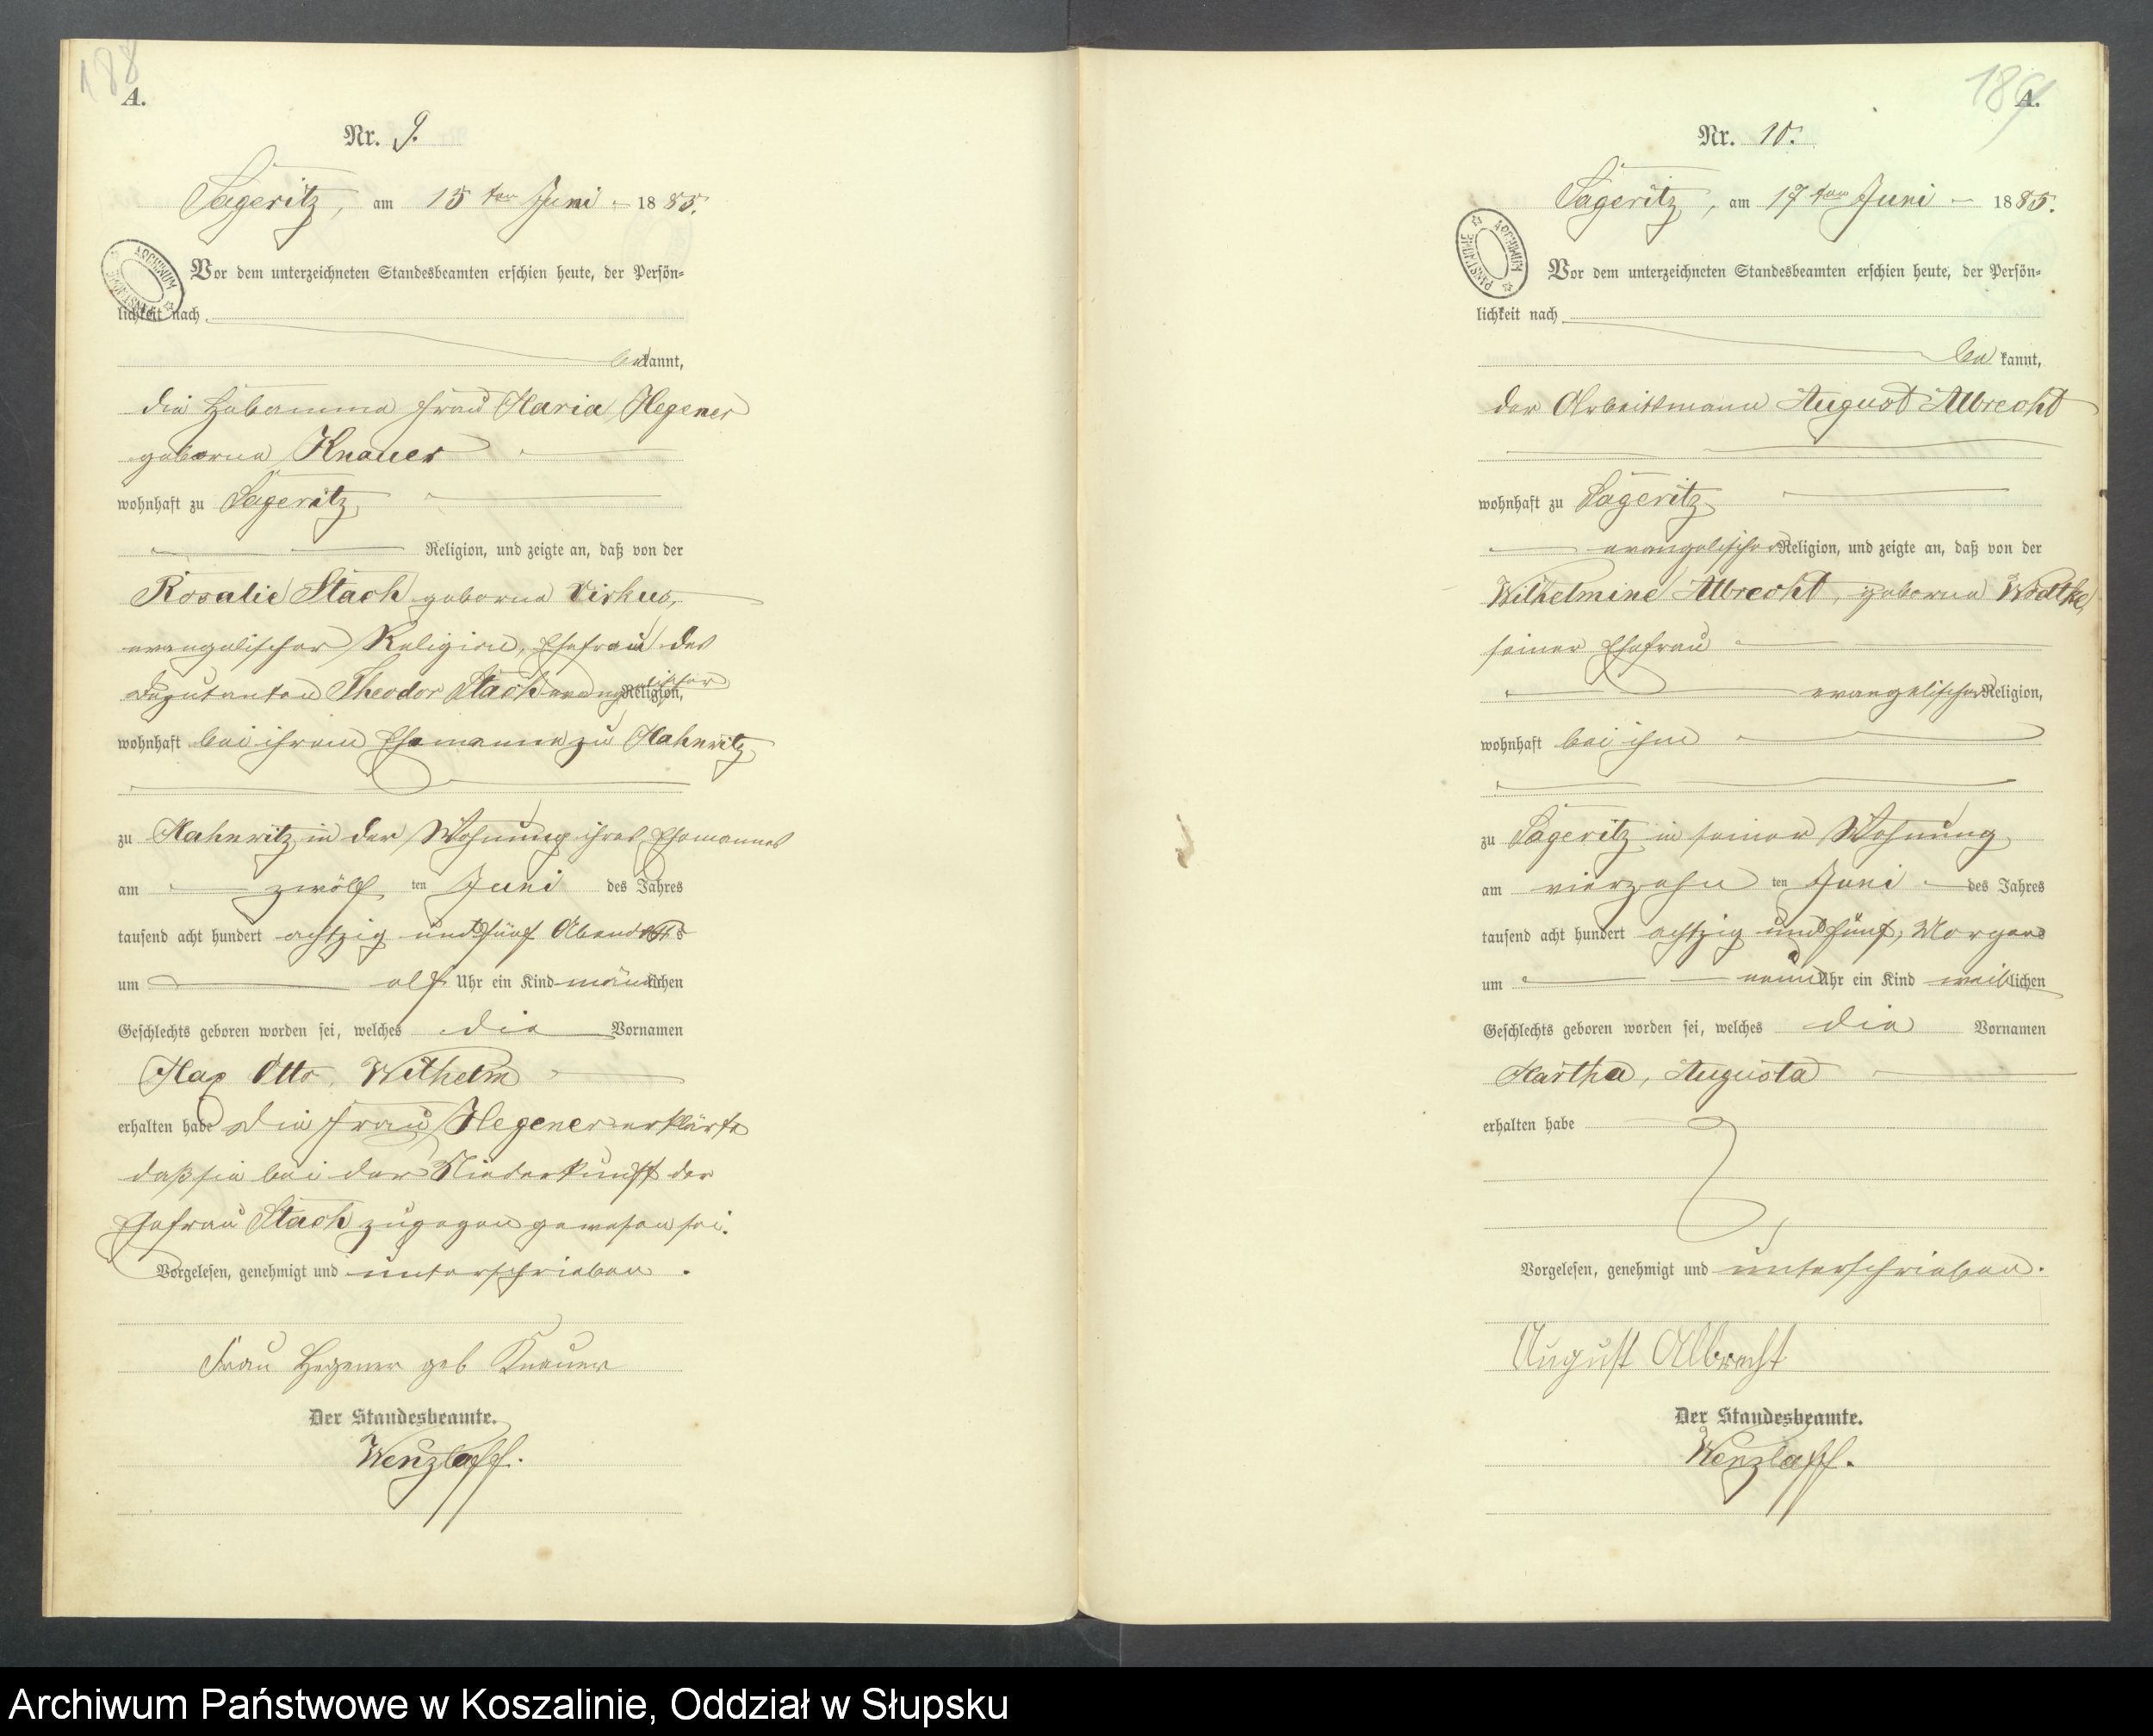 188
A.
Nr. 9.
Sageritz, am 15ten Juni 1885.
ARCHIWUM PAŃSTWOWE
Vor dem unterzeichneten Standesbeamten erschien heute, der Persön-
lichkeit nach
bekannt,
die Hebamme Frau Maria Hegener
geborne Knauer
wohnhaft zu Sageritz
Religion, und zeigte an, daß von der
Rosalie Stach geborne Virkus,
evangelischer Religion, Ehefrau des
Theodor Stach evangelischer Religion,
wohnhaft bei ihrem Ehemanne zu Hahnwitz
zu Hahnwitz in der Wohnung ihres Ehemannes
am zwölf ten Juni des Jahres
tausend acht hundert achtzig und fünf Abends
um elf Uhr ein Kind männlichen
Geschlechts geboren worden sei, welches die Vornamen
Max Otto, Wilhelm
erhalten habe Die Frau Hegener erklärte
daß sie bei der Niederkunft der
Ehefrau Stach zugegen gewesen sei.
Vorgelesen, genehmigt und unterschrieben.
Frau Hegener geb Knauer
Der Standesbeamte.
Wenzlaff.
189
A.
Nr. 10.
Sageritz, am 17ten Juni 1885.
ARCHIWUM PAŃSTWOWE
Vor dem unterzeichneten Standesbeamten erschien heute, der Persön-
lichkeit nach
bekannt,
der Arbeitsmann August Albrecht
wohnhaft zu Sageritz
evangelischer Religion, und zeigte an, daß von der
Wilhelmine Albrecht, geborne Wodtke,
seiner Ehefrau
evangelischer Religion,
wohnhaft bei ihm
zu Sageritz in seiner Wohnung
am vierzehn ten Juni des Jahres
tausend acht hundert achtzig und fünf, Morgens
um neun Uhr ein Kind weiblichen
Geschlechts geboren worden sei, welches die Vornamen
Martha, Augusta
erhalten habe
Vorgelesen, genehmigt und unterschrieben.
August Albrecht
Der Standesbeamte.
Wenzlaff.
Archiwum Państwowe w Koszalinie, Oddział w Słupsku